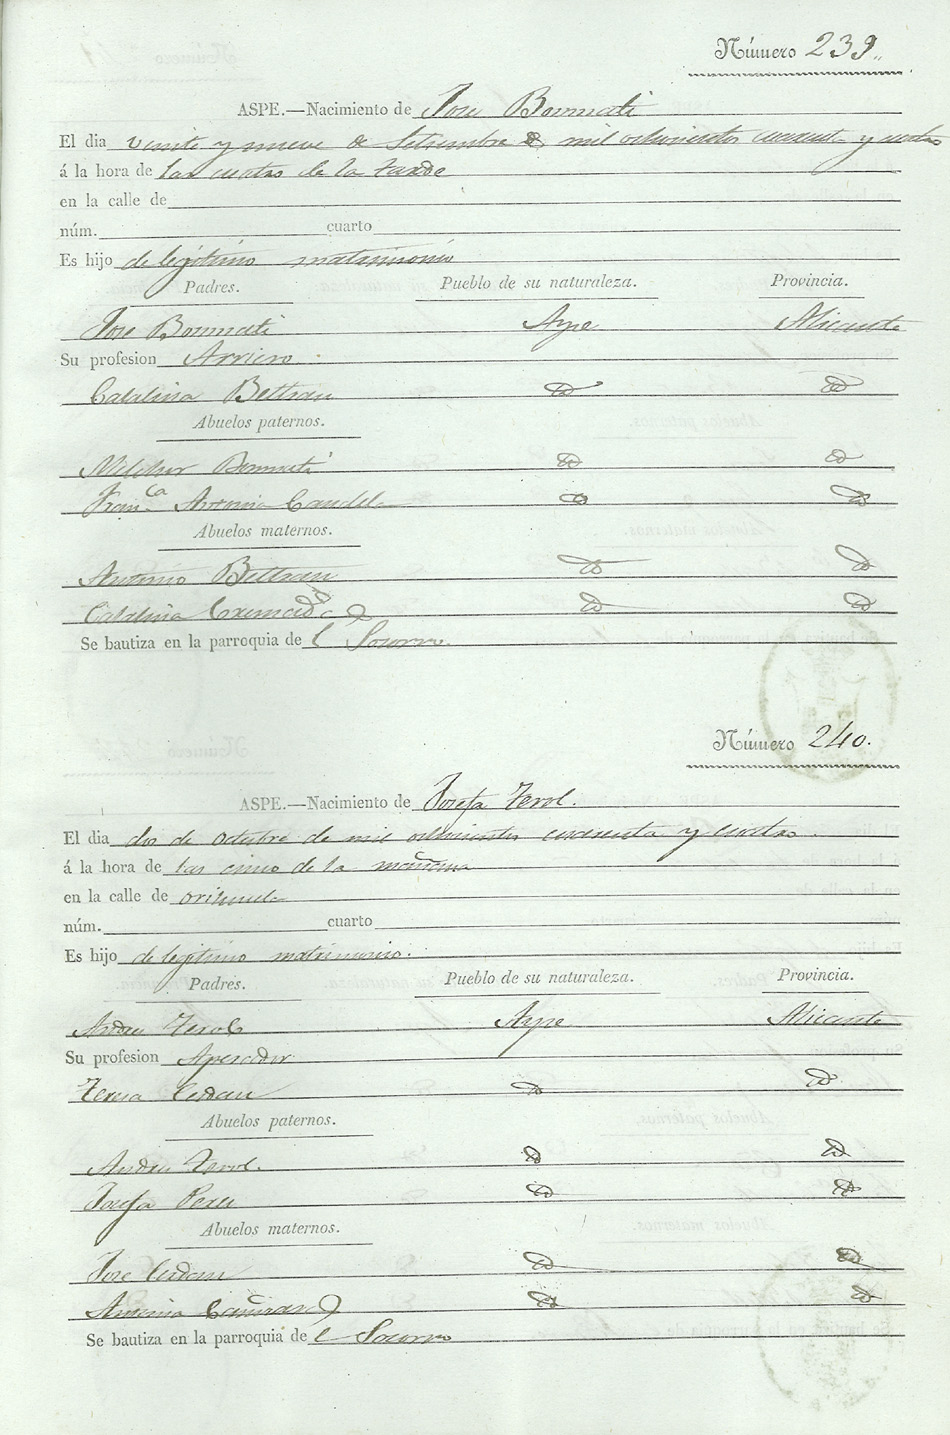 Número 239.
ASPE.—Nacimiento de Jose Bonmati
El dia veinte y nueve de Setiembre de mil ochocientos cuarenta y cuatro
á la hora de las cuatro de la tarde
en la calle de
núm. cuarto
Es hijo de legitimo matrimonio
Padres. Pueblo de su naturaleza. Provincia.
Jose Bonmati Aspe Alicante
Su profesion Arriero
Catalina Beltran id id
Abuelos paternos.
Melchor Bonmati id id
Fran.ca Antonia Candela id id
Abuelos maternos.
Antonio Beltran id id
Catalina id id
Se bautiza en la parroquia de l Socorro.
Número 240.
ASPE.—Nacimiento de Josefa Terol.
El dia dos de octubre de mil ochocientos cuarenta y cuatro.
á la hora de las cinco de la mañana
en la calle de orihuela
núm. cuarto
Es hijo de legitimo matrimonio.
Padres. Pueblo de su naturaleza. Provincia.
Andres Terol Aspe Alicante
Su profesion Aperador
Teresa Cerdan id id
Abuelos paternos.
Andres Terol. id id
Josefa Perez id id
Abuelos maternos.
Jose Cerdan id id
Antonia id id
Se bautiza en la parroquia de l Socorro